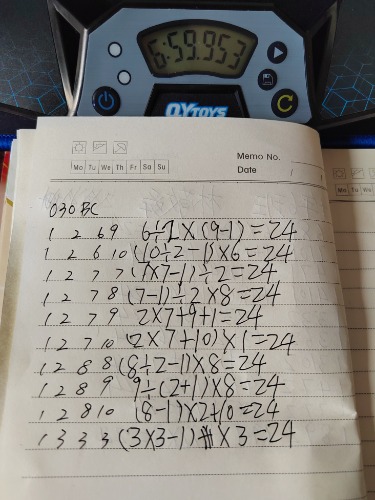 6:59.953
QYTOYS
Mo Tu We Th Fr Sa Su
Memo No.
Date / /
Mo Tu
030BC
1 2 6 9 6÷2×(9-1)=24
1 2 6 10 (10÷2-1)×6=24
1 2 7 7 (7×7-1)÷2=24
1 2 7 8 (7-1)÷2×8=24
1 2 7 9 2×7+9+1=24
1 2 7 10 (2×7+10)×1=24
1 2 8 8 (8÷2-1)×8=24
1 2 8 9 9÷(2+1)×8=24
1 2 8 10 (8-1)×2+10=24
1 3 3 3 (3×3-1)×3=24